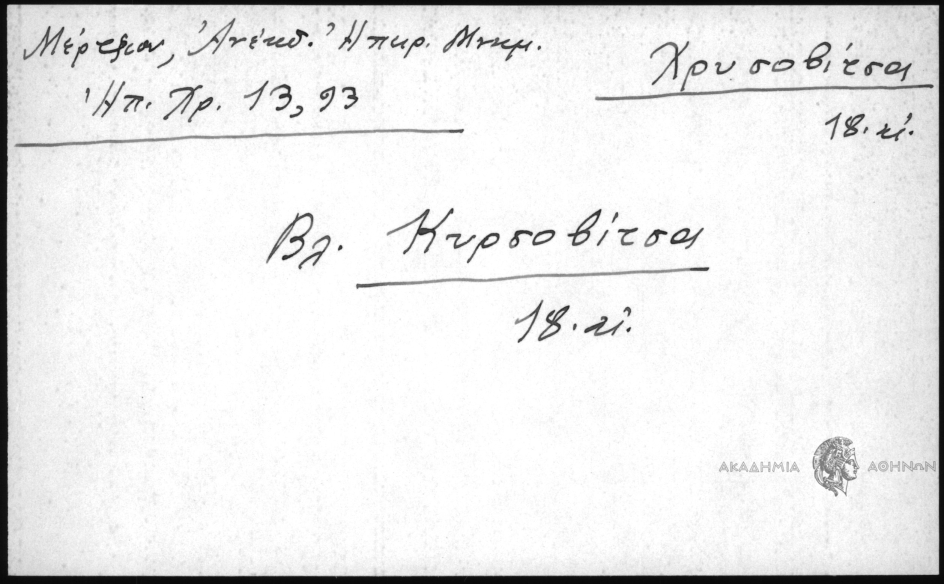 Μέρτζιου, Ἀνέκδ. Ἠπειρ. Μνημ.
Ἠπ. Χρ. 13, 93
Χρυσοβίτσα
18. αἰ.
Βλ. Κυρσοβίτσα
18. αἰ.
ΑΚΑΔΗΜΙΑ ΑΘΗΝΩΝ